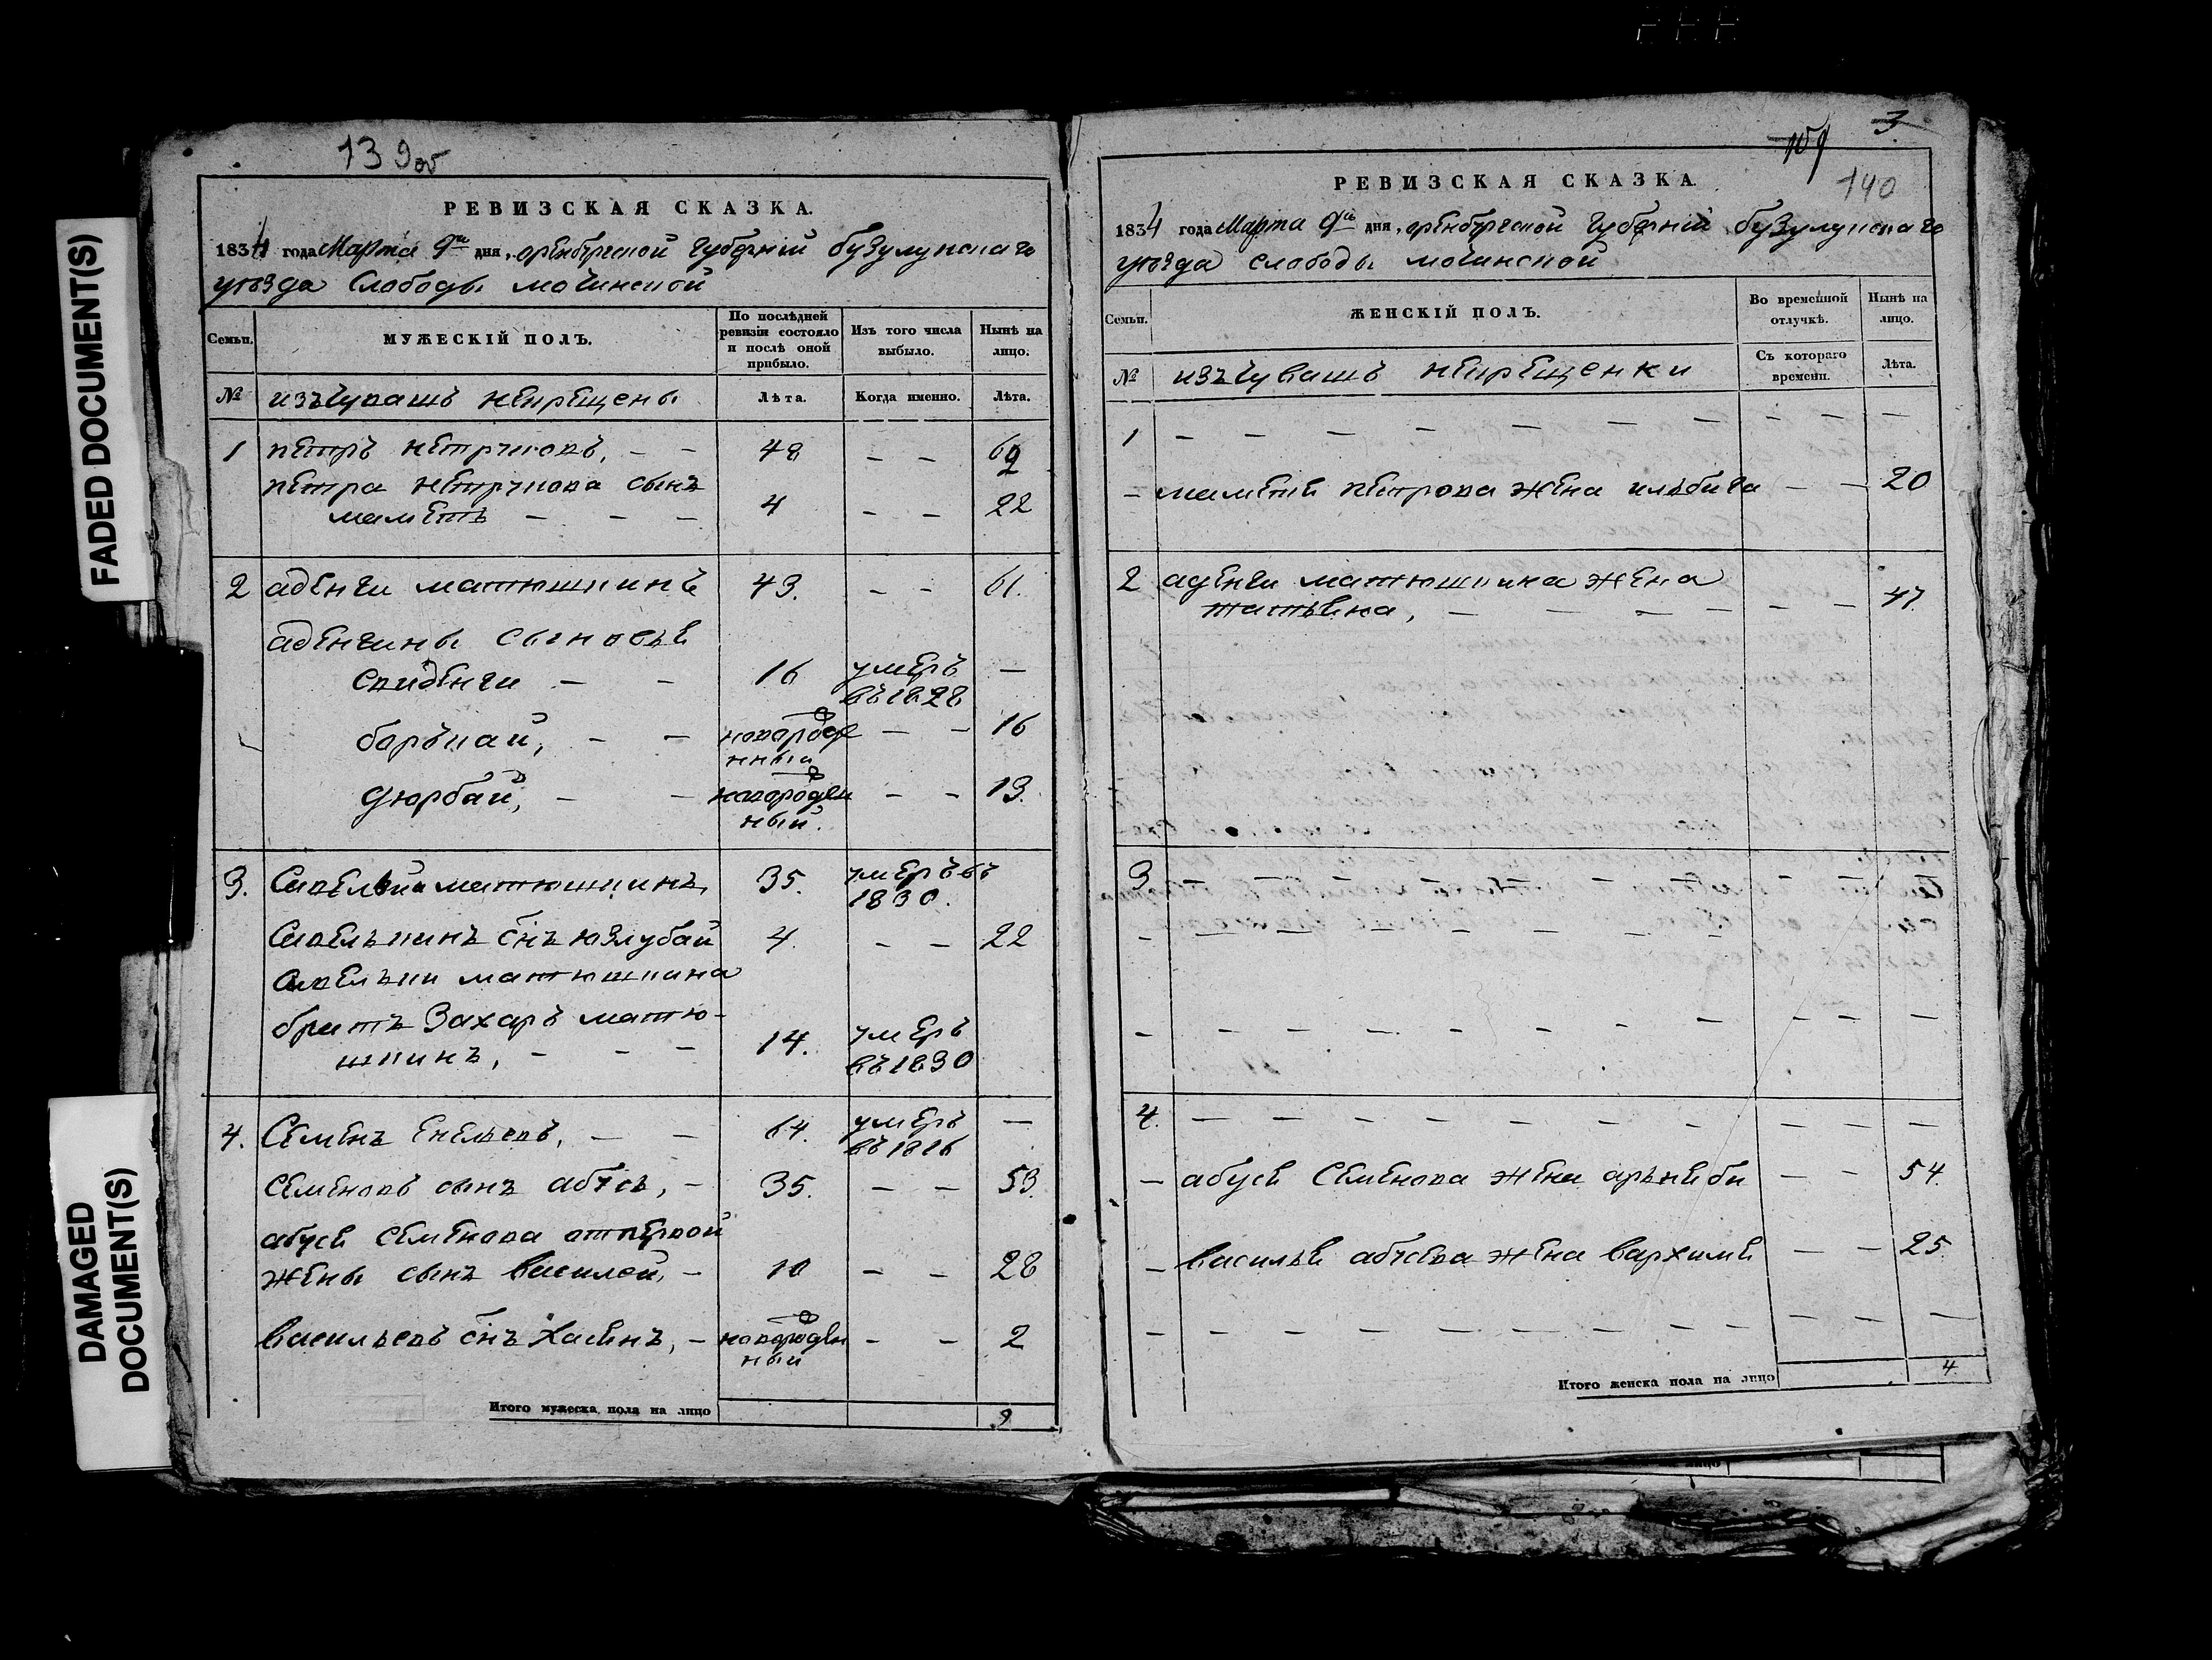 FADED DOCUMENT(S)
DAMAGED
DOCUMENT(S)
139об
РЕВИЗСКАЯ СКАЗКА.
1834 года Марта 9го дня, оренбургской губерніи бузулукскаго
уѣзда слободы мочинской
Семьи.
МУЖЕСКІЙ ПОЛЪ.
По послѣдней
ревизіи состояло
и послѣ оной
прибыло.
Изъ того числа
выбыло.
Нынѣ на
лицо.
№ изъ чувашъ некрещены Лѣта. Когда именно. Лѣта.
1 петръ 48 – –
петра сынъ
маметь – – – 4 – – 22
2 аденги матюшкинъ 43. – – 61.
аденгины сыновье
сведенги – – 16 умеръ –
въ 1828
баръкай, – – новорожде – – 16
нный
дюрбай, – – новорожден – – 13.
ный.
3. матюшкинъ, 35. умеръ въ
1830.
савелькинъ снъ юзлубай 4. – – 22
савельки матюшкина
братъ Захаръ матю-
шкинъ, – – – 14. умеръ
въ 1830
4. Семенъ енельевъ, – – 64. умеръ –
въ 1816
Семеновъ сынъ абусь, – 35. – – 53.
абусе Семенова отпервой
жены сынъ василей, – 10 – – 28
васильевъ снъ Хасенъ, – новорожден – – 2
ный
Итого мужеска пола на лицо 9
3
140
РЕВИЗСКАЯ СКАЗКА.
1834 года Марта 9го дня, оренбургской губерніи бузулукскаго
уѣзда слободы мочинской
Семьи.
ЖЕНСКІЙ ПОЛЪ.
Во временной
отлучкѣ.
Нынѣ на
лицо.
№ изъ чувашъ некрещенки
Съ котораго
времени.
Лѣта.
1 – – – – – – – – – –
– мамете петрова жена ильбига – – 20
2 аденги матюшкина жена
татьяна, – – – – – 47.
3 – – – – – – – – –
– – – – – – –
– – – – – – – – – –
4. – – – – – – – – – –
– абусе Семенова жена – – 54.
– василье абусева жена вархиме – – 25
– – – – – – – – – – –
Итого женска пола на лицо 4.